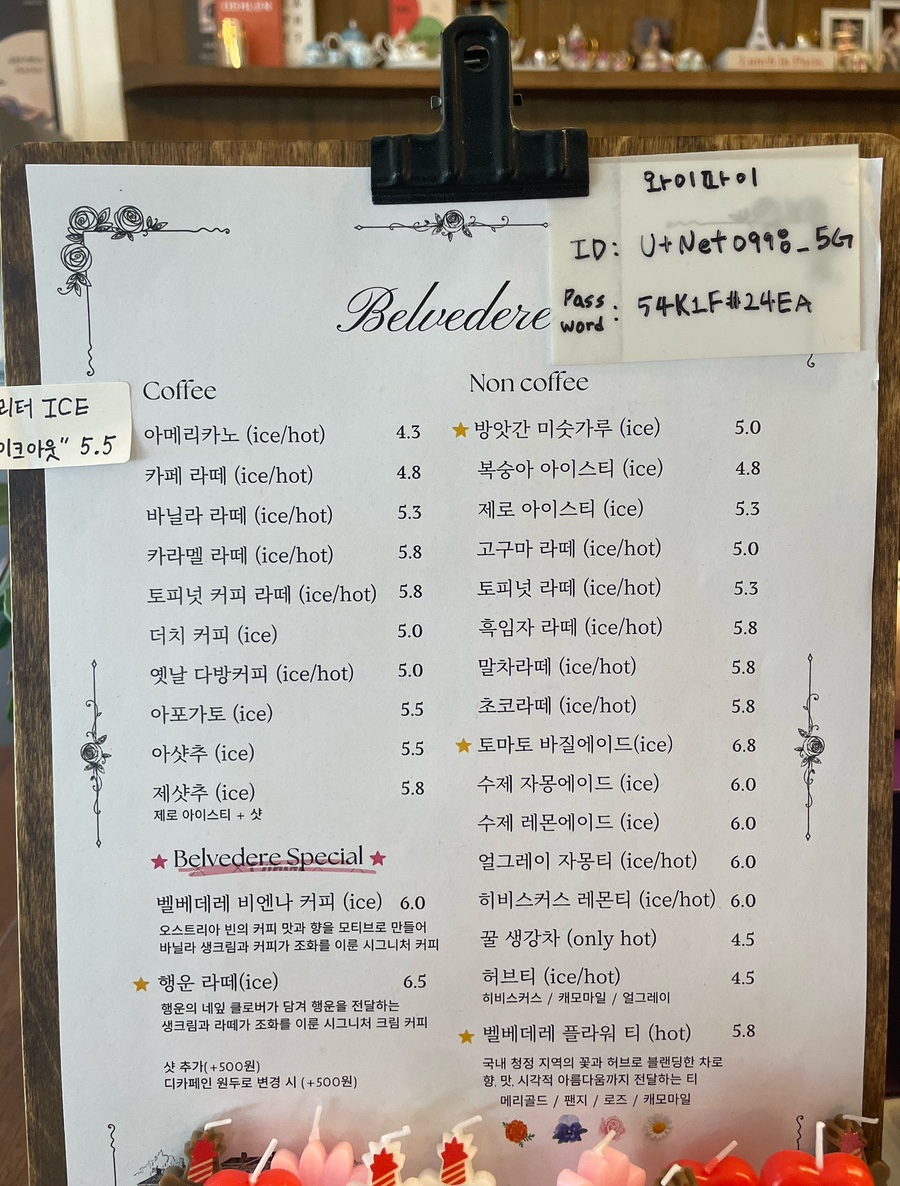 와이파이
ID: U+Net0998_5G
Pass word : 54K1F#24EA
Belvedere
리터 ICE
이크아웃" 5.5
Coffee
아메리카노 (ice/hot) 4.3
카페 라떼 (ice/hot) 4.8
바닐라 라떼 (ice/hot) 5.3
카라멜 라떼 (ice/hot) 5.8
토피넛 커피 라떼 (ice/hot) 5.8
더치 커피 (ice) 5.0
옛날 다방커피 (ice/hot) 5.0
아포가토 (ice) 5.5
아샷추 (ice) 5.5
제샷추 (ice) 5.8
제로 아이스티 + 샷
Belvedere Special
벨베데레 비엔나 커피 (ice) 6.0
오스트리아 빈의 커피 맛과 향을 모티브로 만들어
바닐라 생크림과 커피가 조화를 이룬 시그니처 커피
행운 라떼(ice) 6.5
행운의 네잎 클로버가 담겨 행운을 전달하는
생크림과 라떼가 조화를 이룬 시그니처 크림 커피
샷 추가(+500원)
디카페인 원두로 변경 시 (+500원)
Non coffee
방앗간 미숫가루 (ice) 5.0
복숭아 아이스티 (ice) 4.8
제로 아이스티 (ice) 5.3
고구마 라떼 (ice/hot) 5.0
토피넛 라떼 (ice/hot) 5.3
흑임자 라떼 (ice/hot) 5.8
말차라떼 (ice/hot) 5.8
초코라떼 (ice/hot) 5.8
토마토 바질에이드(ice) 6.8
수제 자몽에이드 (ice) 6.0
수제 레몬에이드 (ice) 6.0
얼그레이 자몽티 (ice/hot) 6.0
히비스커스 레몬티 (ice/hot) 6.0
꿀 생강차 (only hot) 4.5
허브티 (ice/hot) 4.5
히비스커스 / 캐모마일 / 얼그레이
벨베데레 플라워 티 (hot) 5.8
국내 청정 지역의 꽃과 허브로 블랜딩한 차로
향, 맛, 시각적 아름다움까지 전달하는 티
메리골드 / 팬지 / 로즈 / 캐모마일